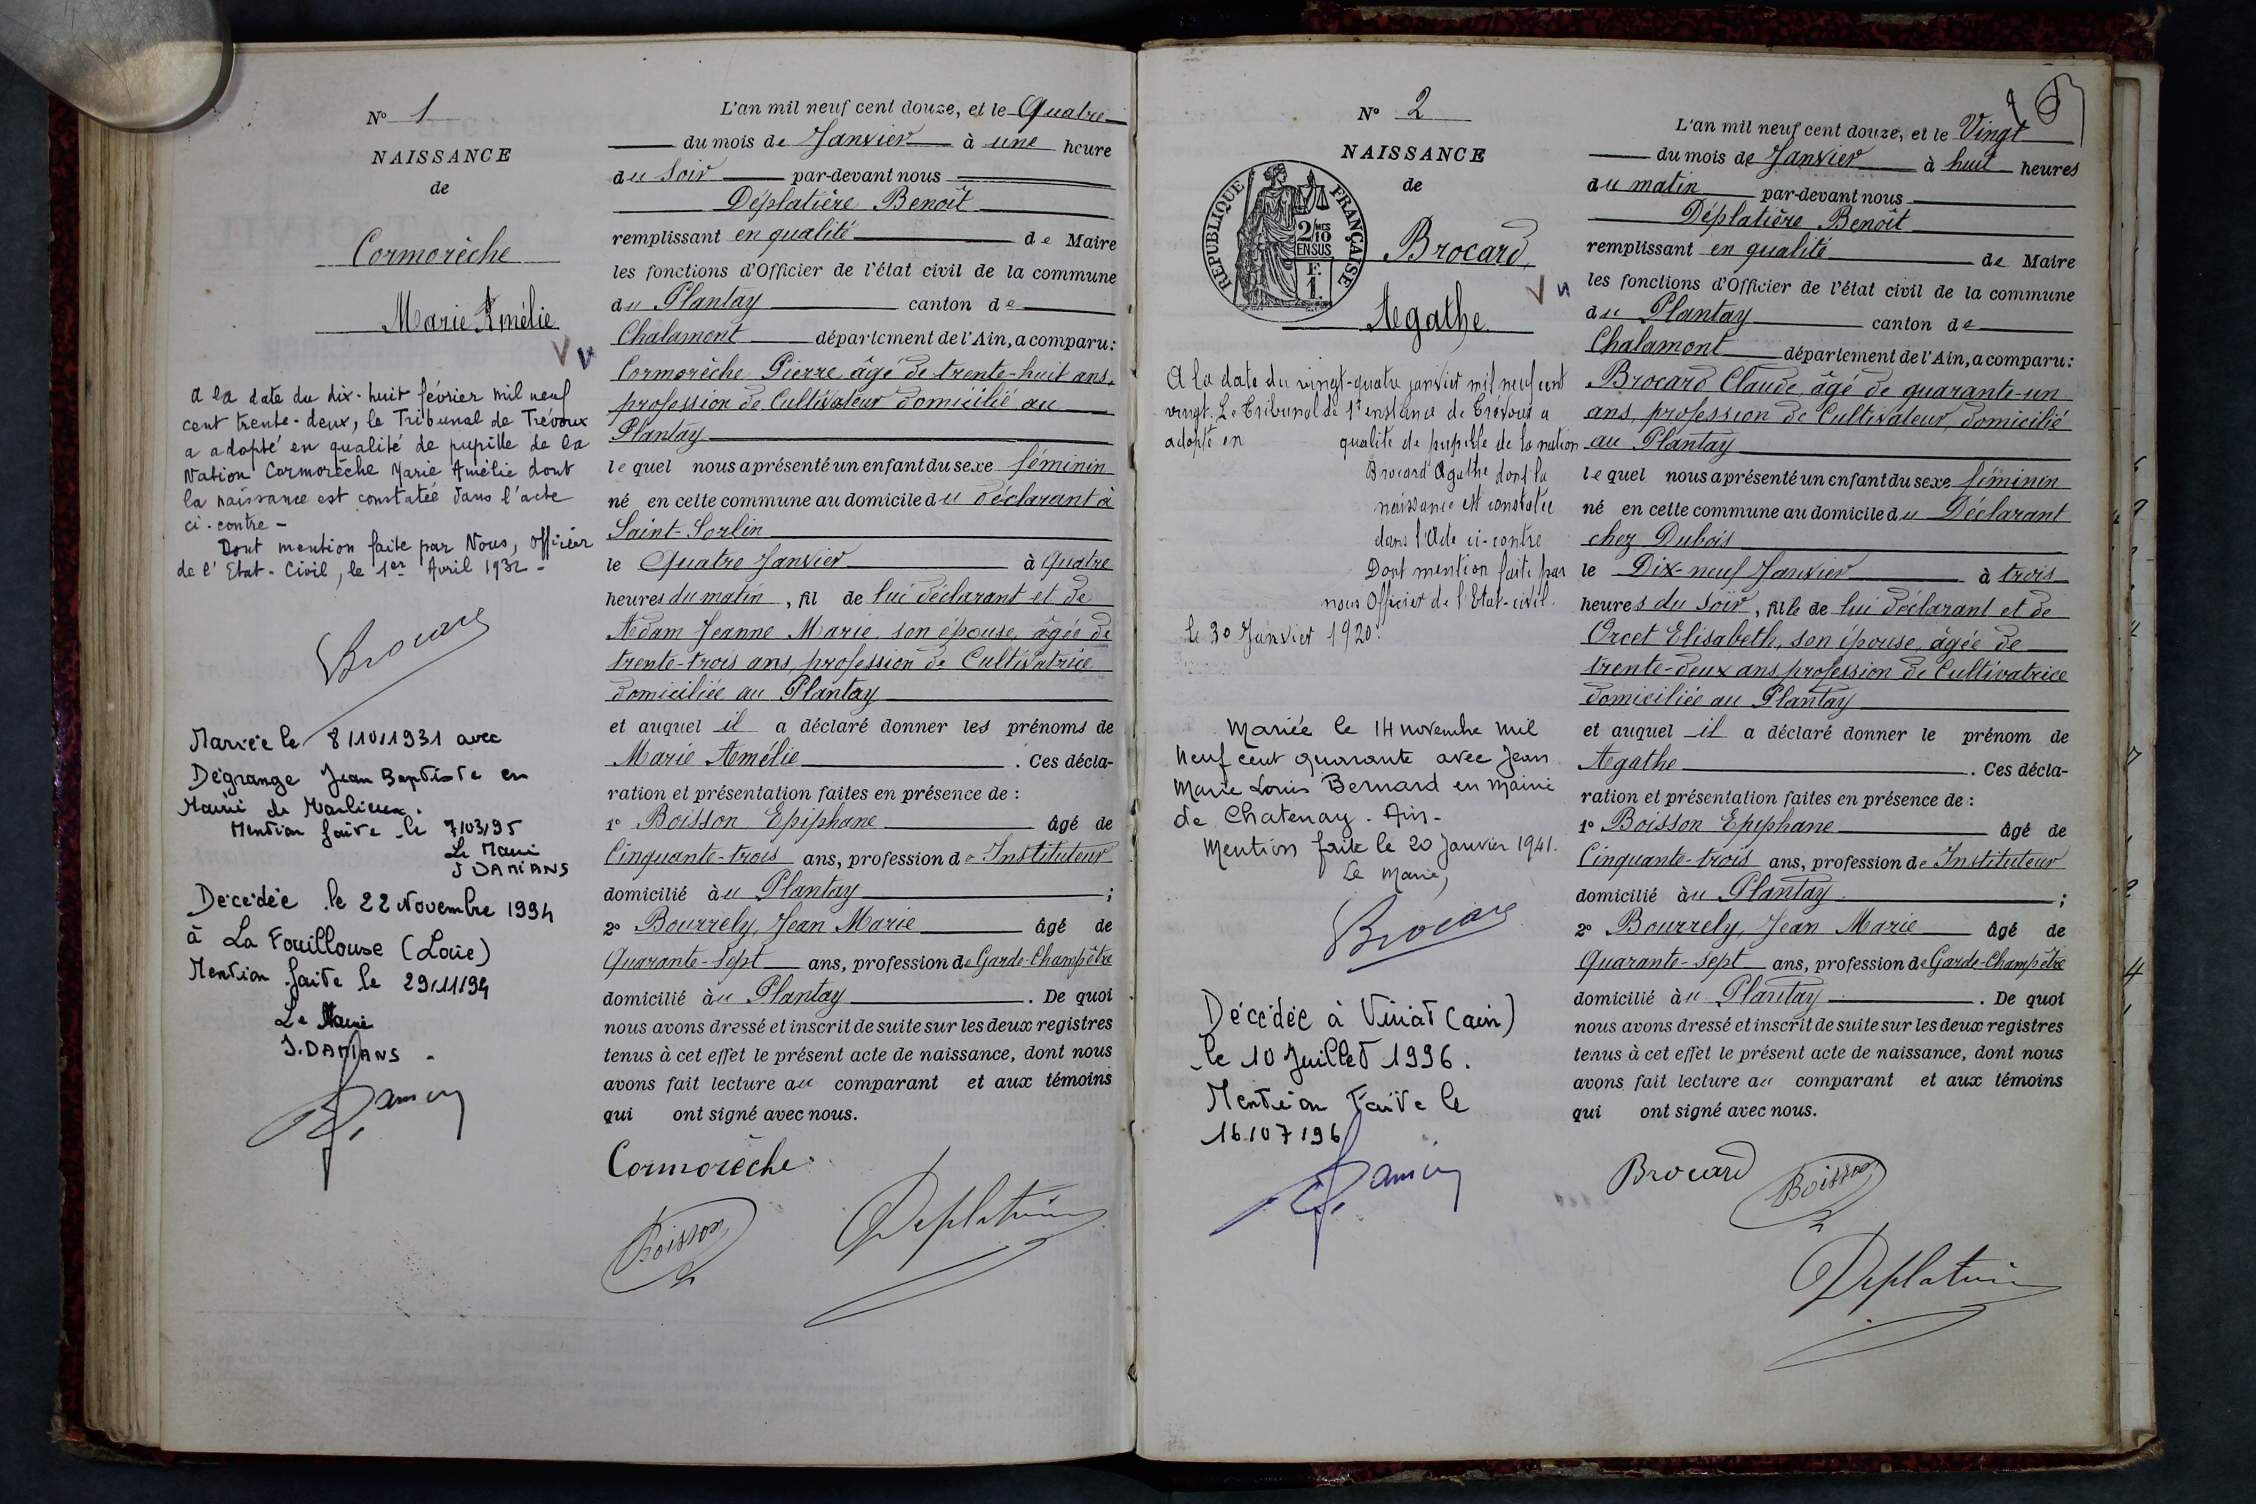 N° 1
NAISSANCE
de
Cormorèche
Marie Amélie
V v
A la date du dix-huit février mil neuf
cent trente-deux, le Tribunal de Trévoux
a adopté en qualité de pupille de la
Nation Cormorèche Marie Amélie dont
la naissance est constatée dans l'acte
ci-contre -
Dont mention faite par Nous, officier
de l'Etat-Civil, le 1er Avril 1932 -
Brocard
Mariée le 8/10/1931 avec
Dégrange Jean Baptiste en
Mairie de Marlieux.
Mention faite le 7/03/95
Le Maire
J DAMIANS
Décédée le 22 Novembre 1994
à La Fouillouse (Loire)
Mention faite le 29/11/94
Le Maire
J. DAMIANS -
L'an mil neuf cent douze, et le Quatre
du mois de Janvier à une heure
du soir par-devant nous
Déplatière Benoît
remplissant en qualité de Maire
les fonctions d'Officier de l'état civil de la commune
du Plantay canton de
Chalamont département de l'Ain, a comparu:
Cormorèche Pierre âgé de trente-huit ans,
profession de Cultivateur domicilié au
Plantay
lequel nous a présenté un enfant du sexe féminin
né en cette commune au domicile du déclarant à
Saint-Sorlin
le Quatre Janvier à Quatre
heures du matin, fil de lui déclarant et de
Adam Jeanne Marie son épouse, âgée de
trente-trois ans, profession de Cultivatrice
domiciliée au Plantay
et auquel il a déclaré donner les prénoms de
Marie Amélie. Ces décla-
ration et présentation faites en présence de :
1° Boisson Epiphane âgé de
Cinquante-trois ans, profession de Instituteur
domicilié au Plantay ;
2° Bourrely, Jean Marie âgé de
Quarante-sept ans, profession de Garde-Champêtre
domicilié au Plantay. De quoi
nous avons dressé et inscrit de suite sur les deux registres
tenus à cet effet le présent acte de naissance, dont nous
avons fait lecture au comparant et aux témoins
qui ont signé avec nous.
Cormorèche
Boisson
Deplatière
N° 2
NAISSANCE
de
RÉPUBLIQUE FRANÇAISE
2/10 MES
EN SUS
F.
1.
Brocard,
Agathe
V v
A la date du vingt-quatre janvier mil neuf cent
vingt. Le Tribunal de 1re instance de Trévoux a
adopté en qualité de pupille de la nation
Brocard Agathe dont la
naissance est constatée
dans l'Acte ci-contre
Dont mention faite par
nous Officier de l'Etat-civil.
le 30 Janvier 1920.
Mariée le 14 novembre mil
neuf cent quarante avec Jean
Marie Louis Bernard en mairie
de Chatenay. Ain-
Mention faite le 20 Janvier 1941.
Le Maire,
Brocard
Décédée à Viriat (ain)
le 10 Juillet 1996.
Mention Faite le
16/07/96
L'an mil neuf cent douze, et le Vingt
du mois de Janvier à huit heures
du matin par-devant nous
Déplatière Benoît
remplissant en qualité de Maire
les fonctions d'Officier de l'état civil de la commune
du Plantay canton de
Chalamont département de l'Ain, a comparu:
Brocard Claude, âgé de quarante-un
ans, profession de Cultivateur, domicilié
au Plantay
lequel nous a présenté un enfant du sexe féminin
né en cette commune au domicile du Déclarant
chez Dubois
le Dix-neuf Janvier à trois
heures du soir, fille de lui déclarant et de
Orcet Elisabeth, son épouse, âgée de
trente-deux ans, profession de Cultivatrice
domiciliée au Plantay
et auquel il a déclaré donner le prénom de
Agathe. Ces décla-
ration et présentation faites en présence de :
1° Boisson Epiphane âgé de
Cinquante-trois ans, profession de Instituteur
domicilié au Plantay ;
2° Bourrely, Jean Marie âgé de
Quarante-sept ans, profession de Garde-Champêtre
domicilié au Plantay. De quoi
nous avons dressé et inscrit de suite sur les deux registres
tenus à cet effet le présent acte de naissance, dont nous
avons fait lecture au comparant et aux témoins
qui ont signé avec nous.
Brocard
Boisson
Deplatière